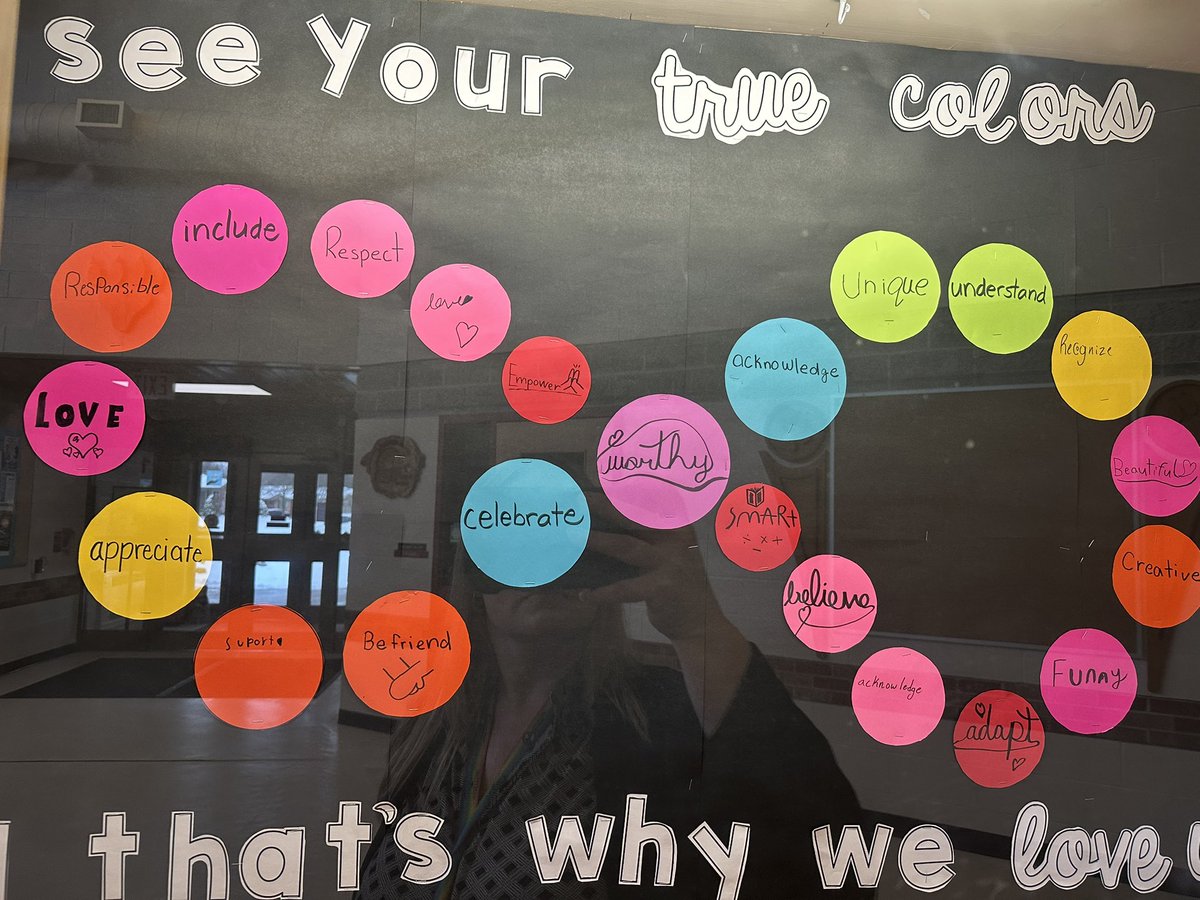 see your true colors
include
Respect
Responsible
love
Unique
understand
Empower
acknowledge
Recognize
LOVE
worthy
Beautiful
celebrate
SMARt
÷ × +
−
appreciate
Creative
believe
suport
Befriend
acknowledge
Funny
adapt
that's why we love